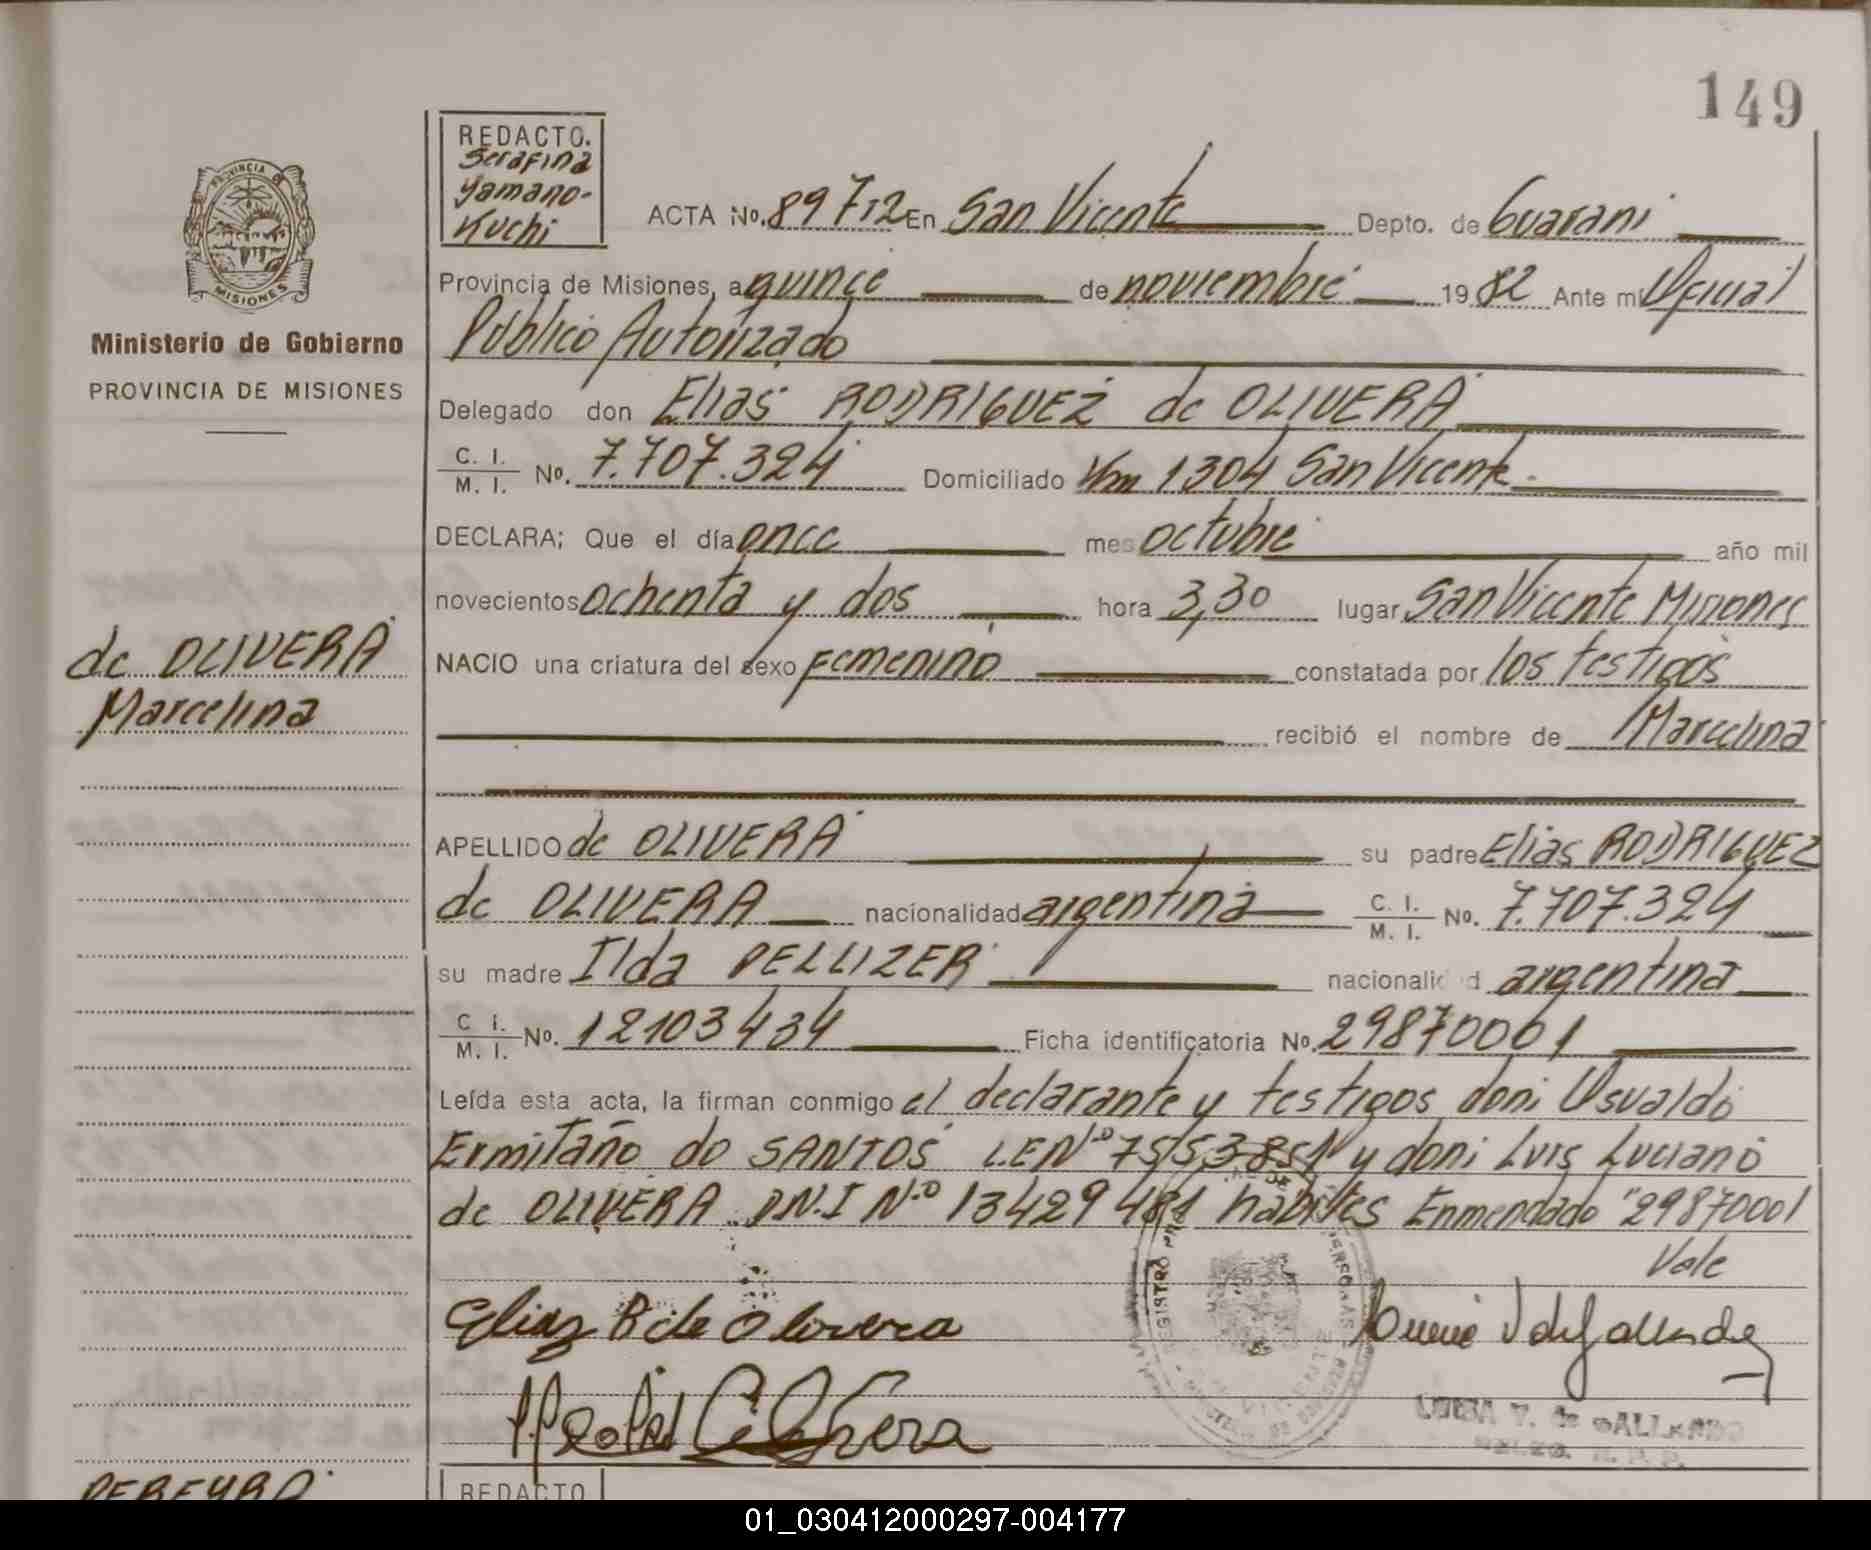 149
REDACTO.
Serafina
Yamano-
Kuchi
ACTA No. 89712 En San Vicente Depto. de Guarani
PROVINCIA DE
MISIONES
Ministerio de Gobierno
PROVINCIA DE MISIONES
Provincia de Misiones, a quince de noviembre 19 82 Ante mi Oficial
Publico Autorizado
Delegado don Elias RODRIGUEZ de OLIVERA
C. I.
M. I. No. 7.707.324 Domiciliado Km 1304 San Vicente.
DECLARA; Que el día once mes octubre año mil
novecientos ochenta y dos hora 3,30 lugar San Vicente Misiones
de OLIVERA
Marcelina
NACIO una criatura del sexo femenino constatada por los testigos
recibió el nombre de Marcelina
APELLIDO de OLIVERA su padre Elias RODRIGUEZ
de OLIVERA nacionalidad argentina C. I.
M. I. No. 7.707.324
su madre Ilda PELLIZER nacionali d argentina
C I.
M. I. No. 12103434 Ficha identificatoria No. 29870001
Leída esta acta, la firman conmigo el declarante y testigos don: Usvaldo
Ermitaño do SANTOS L.E Nº 7553851 y don: Luis Luciano
de OLIVERA D.N.I Nº 13429481 habiles Enmendado "29870001
Vale
Elias R de Olivera
LUISA V. de GALLARDO
PEREYRA
REDACTO
01_030412000297-004177